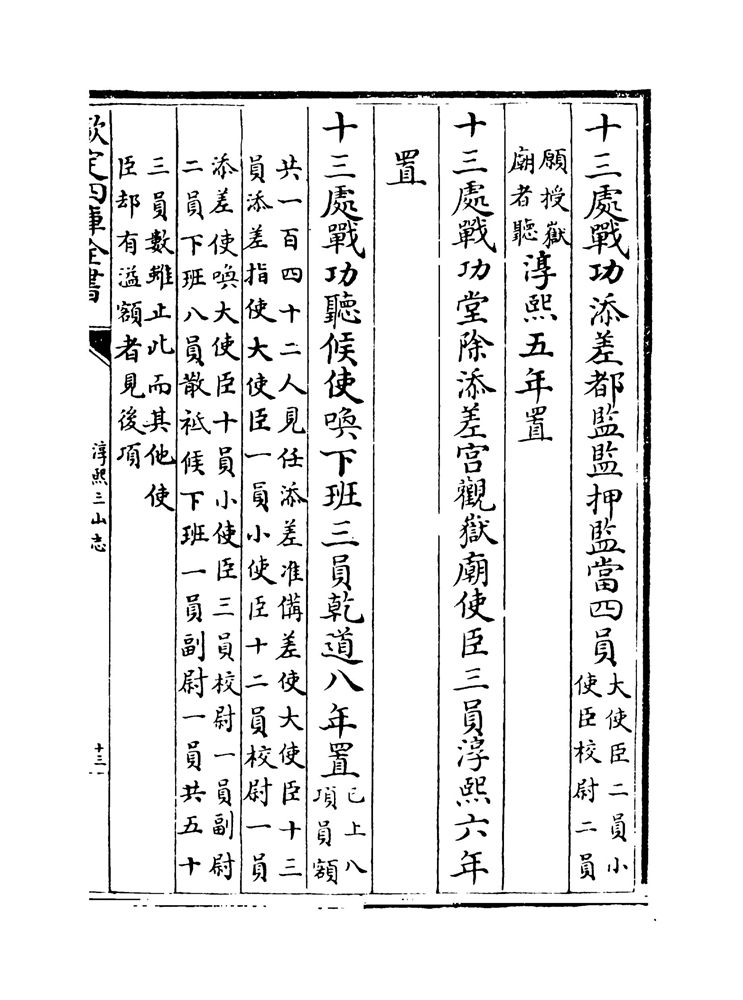 十三處戰功添差都監監押監當四員大使臣二員小
使臣校尉二員
願授嶽
廟者聽淳熙五年置
十三處戰功堂除添差宮觀嶽廟使臣三員淳熙六年
置
十三處戰功聽候使喚下班三員乾道八年置已上八
項員額
共一百四十二人見任添差准備差使大使臣十三
員添差指使大使臣一員小使臣十二員校尉一員
添差使喚大使臣十員小使臣三員校尉一員副尉
二員下班八員散祗候下班一員副尉一員共五十
三員數雖止此而其他使
臣却有溢額者見後項
欽定四庫全書
淳熙三山志
十三